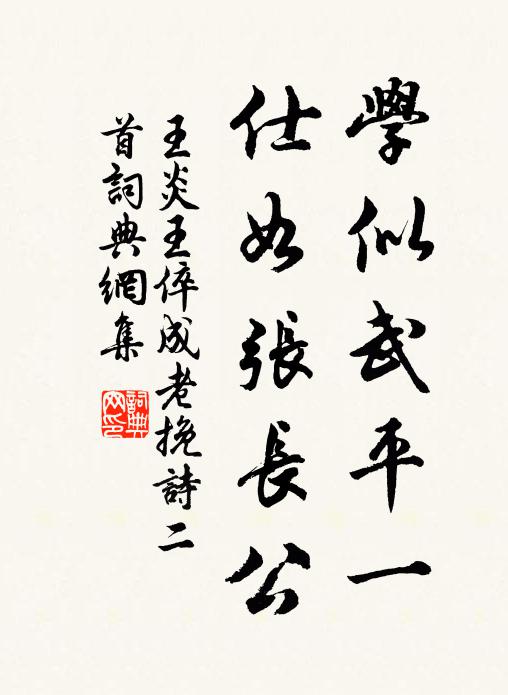 學似武平一
仕如張長公
王炎王倅成老挽詩二
首詞典網集
詞典
网印